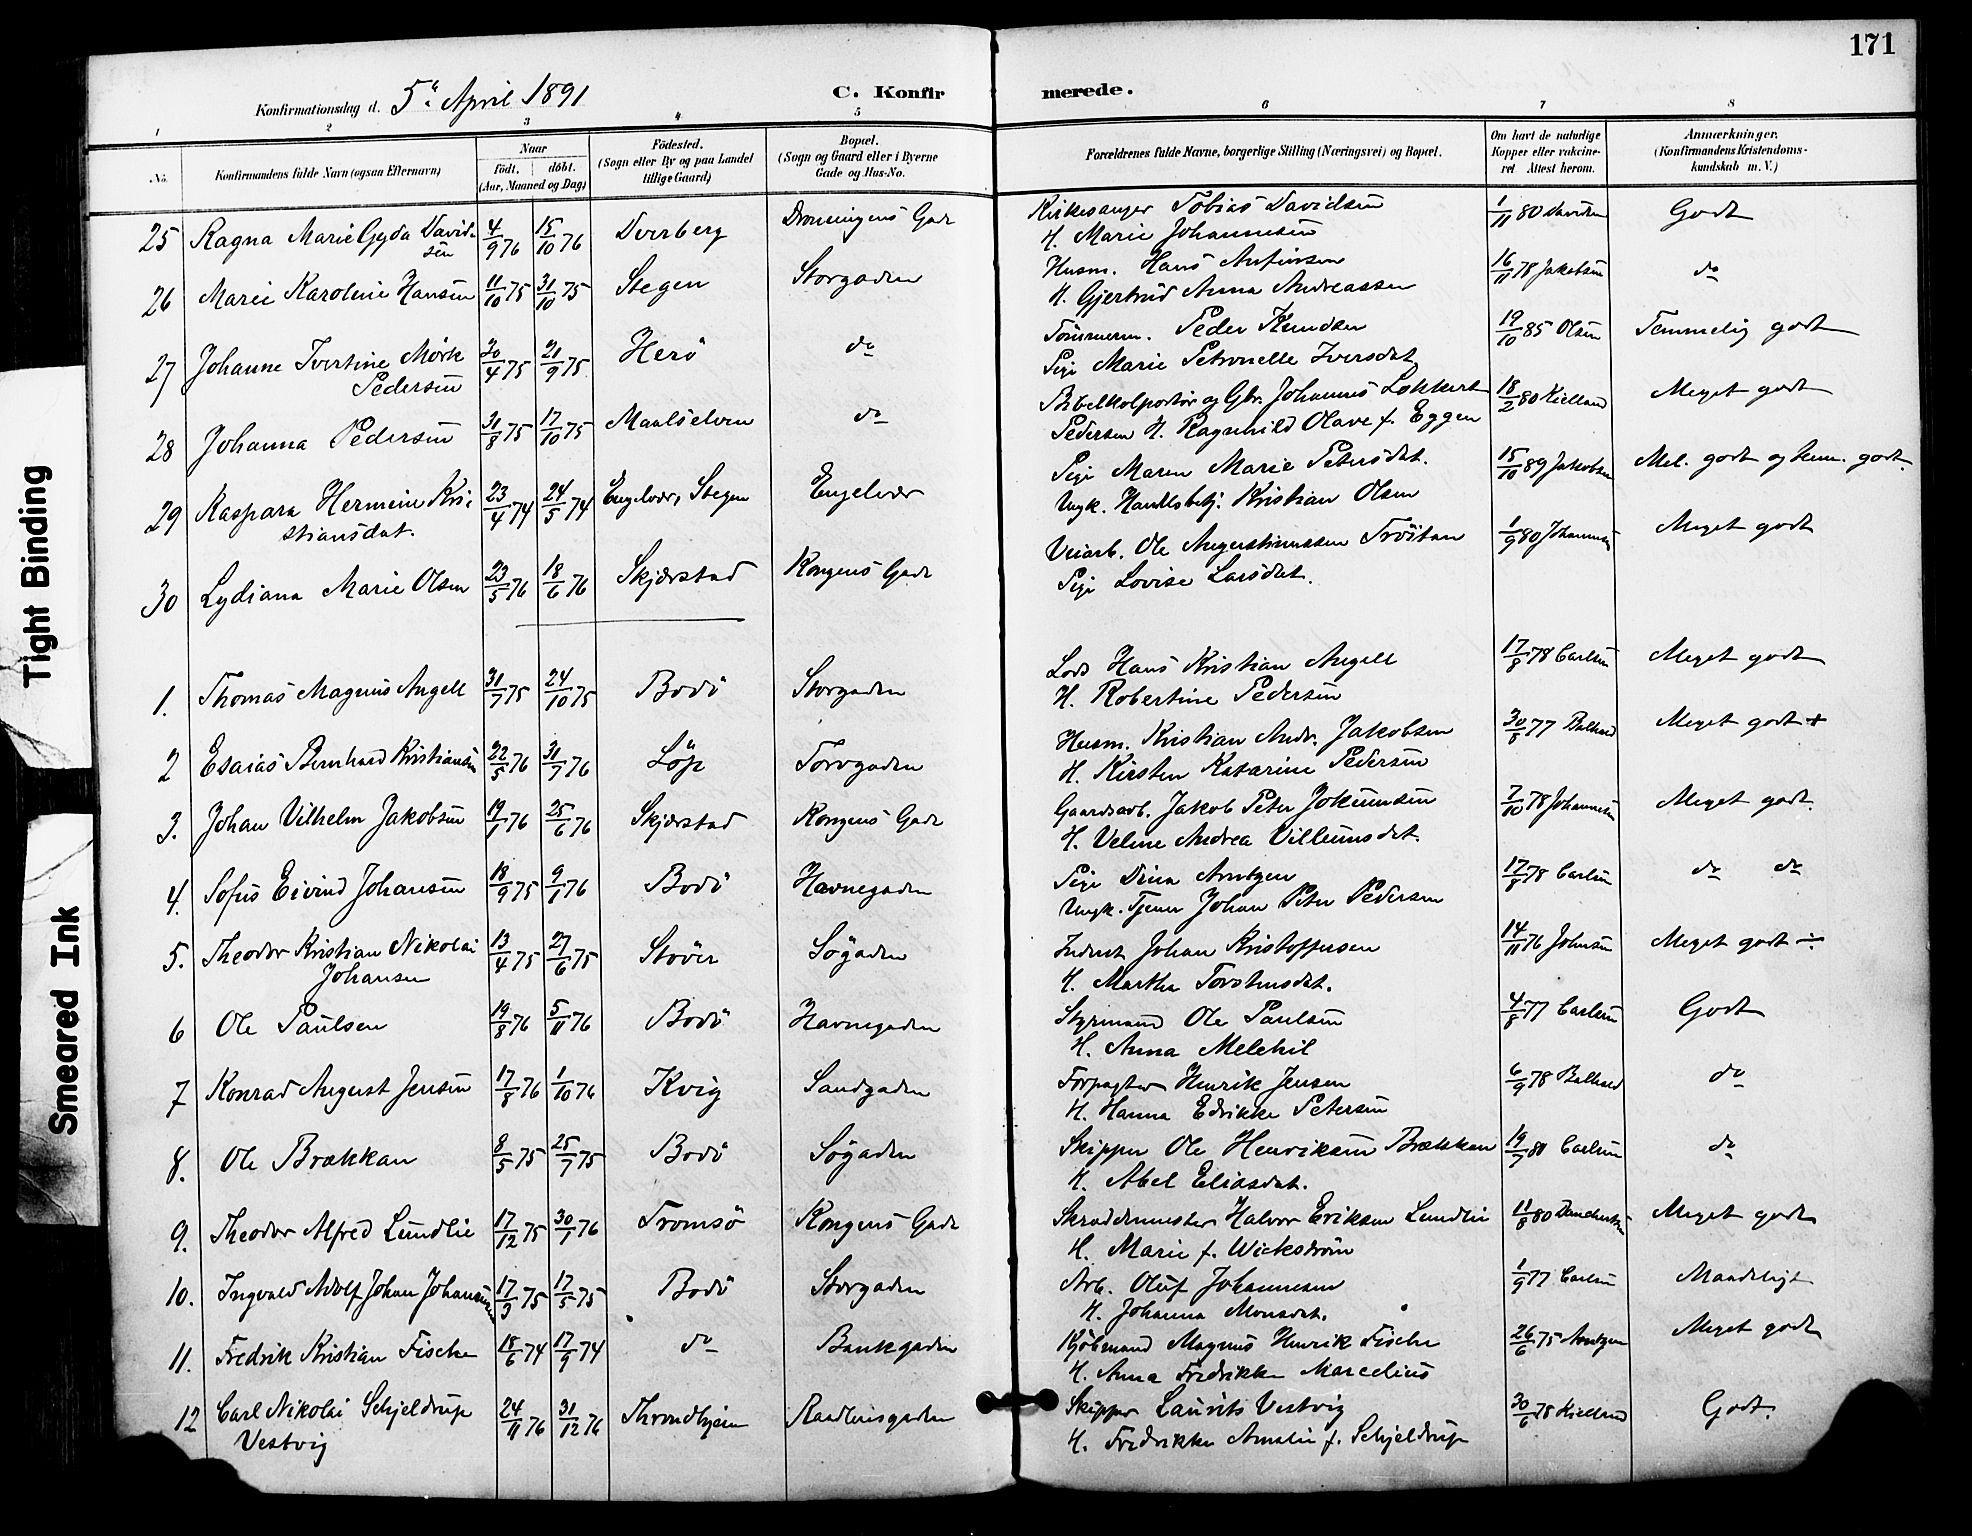 171
Konfirmationsdag d. 5te April 1891 C. Konfirmerede.
1 2 3 4 5 6 7 8
No. Konfirmandens fulde Navn (ogsaa Efternavn) Naar födt. döbt. (Aar, Maaned og Dag) Födested. (Sogn eller By og paa Landet tillige Gaard) Bopæl. (Sogn og Gaard eller i Byerne Gade og Hus-No. Forældrenes fulde Navne, borgerlige Stilling (Næringsvei) og Bopæl. Om havt de naturlige Kopper eller vakcineret Attest herom. Anmærkninger. (Konfirmandens Kristendomskundskab m. V.)
25 Ragna Marie Gyda Davidsen 4/9 76 15/10 76 Dverberg Dronningens Gade Kirkesanger Tobias Davidsen 1/11 80 Davidsen Godt
H. Marie Johannesen
26 Marie Karoline Hansen 11/10 75 31/10 75 Stegen Storgaden Husm. Hans Anfinsen 16/11 78 Jakobsen do
H. Gjertrud Anna Andreassen
27 Johanne Ivertine Mørk Pedersen 30/4 75 21/9 75 Herö do Tömmerm. Peder Knudsen 19/10 85 Olsen Temmelig godt
Pige Marie Petronelle Iversdat.
28 Johanna Pedersen 31/8 75 17/10 75 Maalselven do Bibelkolportör og Gbr. Johannes Lokkert 18/2 80 Kielland Meget godt
Pedersen H. Ragnhild Olave f. Eggen
29 Kaspara Hermine Kristiansdat. 23/4 74 24/5 74 Engelvær, Stegen Engelvær Pige Maren Marie Petersdat. 15/10 89 Jakobsen Mel. godt og tem. godt.
Ungk. Handlsbetj. Kristian Olsen
30 Lydiana Marie Olsen 23/5 76 18/6 76 Skjærstad Kongens Gade Veiarb. Ole Augustinussen Tröitan 1/9 80 Johannesen Meget godt
Pige Lovise Larsdat.
1. Thomas Magnus Angell 31/7 75 24/10 75 Bodö Storgaden Lods Hans Kristian Angell 17/8 78 Carlsen Meget godt
H. Robertine Pedersen
2 Esaias Bernhard Kristiansen 22/5 76 31/7 76 Löp Torvgaden Husm. Kristian Andr. Jakobsen 30/8 77 Balsrud Meget godt +
H. Kirsten Katarine Pedersen
3. Johan Vilhelm Jakobsen 19/1 76 25/6 76 Skjærstad Kongens Gade Gaardsarb. Jakob Peter Jokumsen 7/10 78 Johannesen Meget godt.
H. Veline Andrea Villumsdat.
4. Sofus Eivind Johansen 18/9 75 9/1 76 Bodö Havnegaden Pige Dina Arntzen 17/8 78 Carlsen do do
Ungk. Tjener Johan Peter Pedersen
5. Theodor Kristian Nikolai Johansen 13/4 75 27/6 75 Stöver Sögaden Inderst Johan Kristoffersen 14/11 76 Johnsen Meget godt ÷
H. Martha Torstensdat.
6 Ole Paulsen 19/8 76 5/11 76 Bodö Havnegaden Styrmand Ole Paulsen 4/8 77 Carlsen Godt
H. Anna Melchil
7 Konrad August Jensen 17/8 76 1/10 76 Kvig Sandgaden Forpagter Henrik Jensen 6/9 78 Balsrud do
H. Hanna Edrikke Petersen
8. Ole Brækkan 8/5 75 25/7 75 Bodö Sögaden Skipper Ole Henriksen Brækkan 19/7 80 Carlsen do
H. Abel Eliasdat.
9. Theodor Alfred Lundlie 17/12 75 30/1 76 Tromsö Kongens Gade Skræddermester Halvor Eriksen Lundlie 11/8 80 Meget godt
H. Marie f. Wickström
10. Ingvald Adolf Johan Johannesen 17/3 75 17/5 75 Bodö Storgaden Arb. Oluf Johannesen 1/9 77 Carlsen Maadeligt
H. Johanna Monsdat.
11. Fredrik Kristian Fischer 18/6 74 17/9 74 do Bankgaden Kjöbmand Magnus Henrik Fischer 26/6 75 Arntzen Meget godt
H. Anna Fredrikke Marcelius
12 Carl Nikolai Schjeldrup Vestvig 24/11 76 31/12 76 Throndhjem Raadhusgaden Skipper Laurits Vestvig 30/6 78 Kielland Godt.
H. Fredrikke Amalie f. Schjeldrup
Tight Binding
Smeared Ink